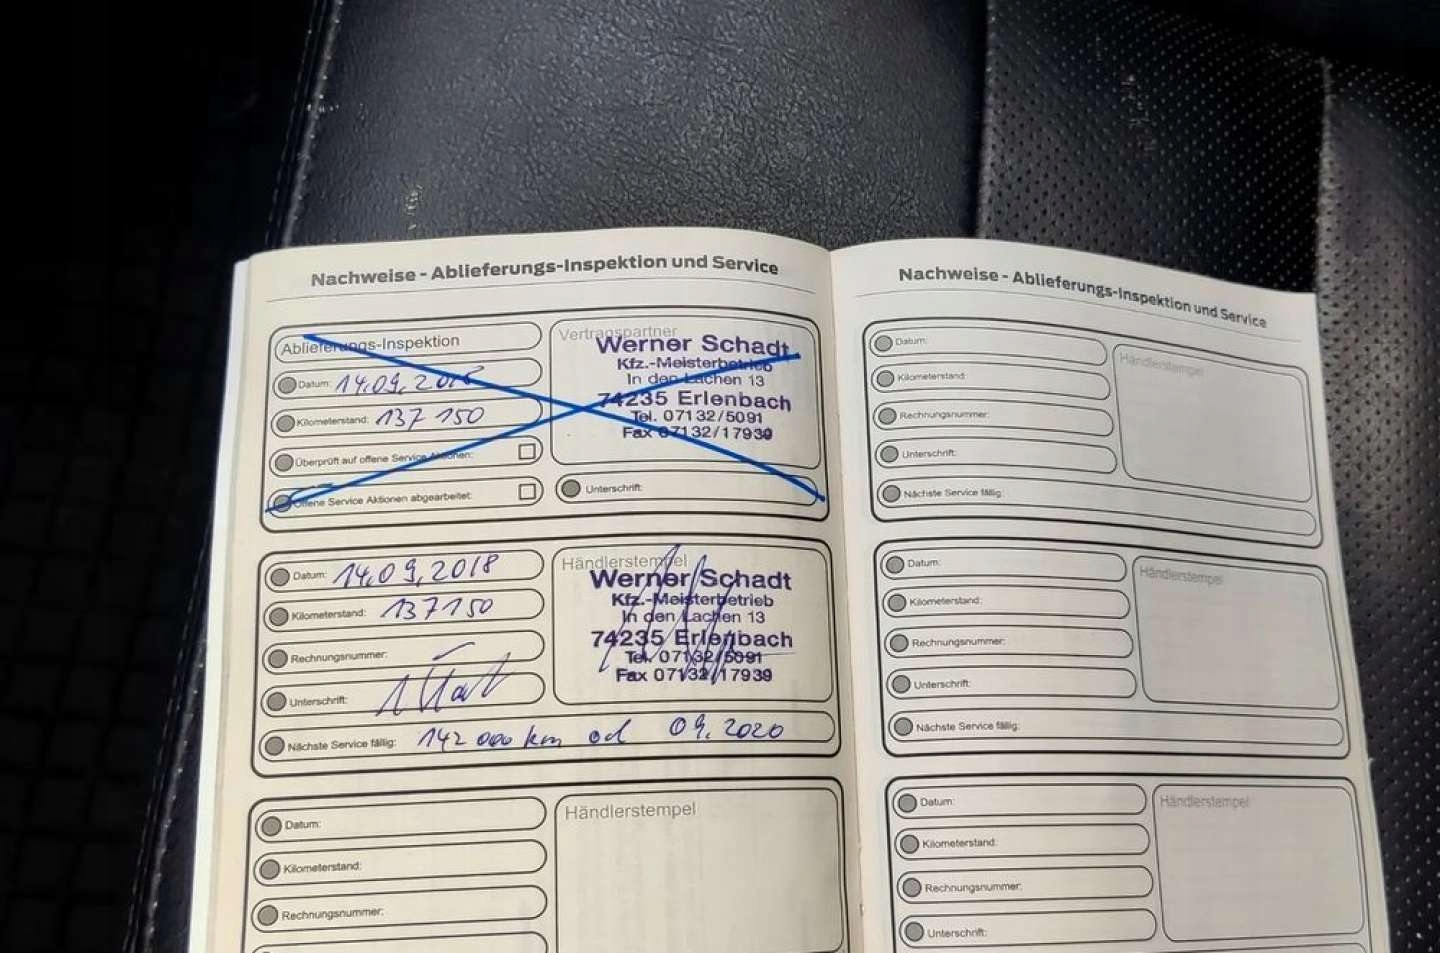 Nachweise - Ablieferungs-Inspektion und Service
Ablieferungs-Inspektion
Datum: 14.09.2018
Kilometerstand: 137 150
Überprüft auf offene Service Aktionen:
Offene Service Aktionen abgearbeitet:
Vertragspartner
Werner Schadt
Kfz.-Meisterbetrieb
In den Lachen 13
74235 Erlenbach
Tel. 07132/5091
Fax 07132/17939
Unterschrift:
Datum: 14.09.2018
Kilometerstand: 137150
Rechnungsnummer:
Unterschrift:
Händlerstempel
Werner Schadt
Kfz.-Meisterbetrieb
In den Lachen 13
74235 Erlenbach
Tel. 07132/5091
Fax 07132/17939
Nächste Service fällig: 142 000 km od 09.2020
Datum:
Kilometerstand:
Rechnungsnummer:
Händlerstempel
Nachweise - Ablieferungs-Inspektion und Service
Datum:
Kilometerstand:
Rechnungsnummer:
Unterschrift:
Nächste Service fällig:
Händlerstempel
Datum:
Kilometerstand:
Rechnungsnummer:
Unterschrift:
Nächste Service fällig:
Händlerstempel
Datum:
Kilometerstand:
Rechnungsnummer:
Unterschrift:
Händlerstempel